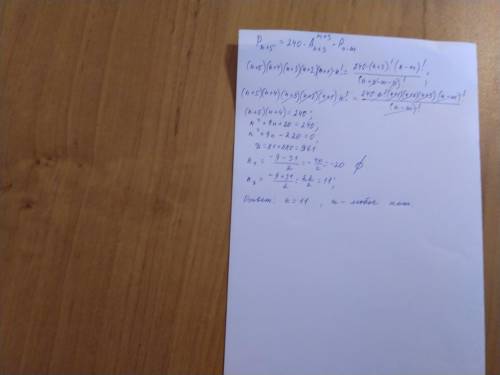 P_{n+5} = 240 · A_{n+3}^{m+3} · P_{n-m}
(n+5)(n+4)(n+3)(n+2)(n+1)·n! = 240·(n+3)!·(n-m)! / (n+3-m-3)! ;
(n+5)(n+4)(n+3)(n+2)(n+1)·n! = 240·n!(n+1)(n+2)(n+3)(n-m)! / (n-m)!
(n+5)(n+4) = 240;
n² + 9n + 20 = 240;
n² + 9n - 220 = 0;
D = 81 + 880 = 961
n₁ = -9-31 / 2 = -40 / 2 = -20 ∅
n₂ = -9+31 / 2 = 22 / 2 = 11;
Ответ: n = 11, m - любое нат.